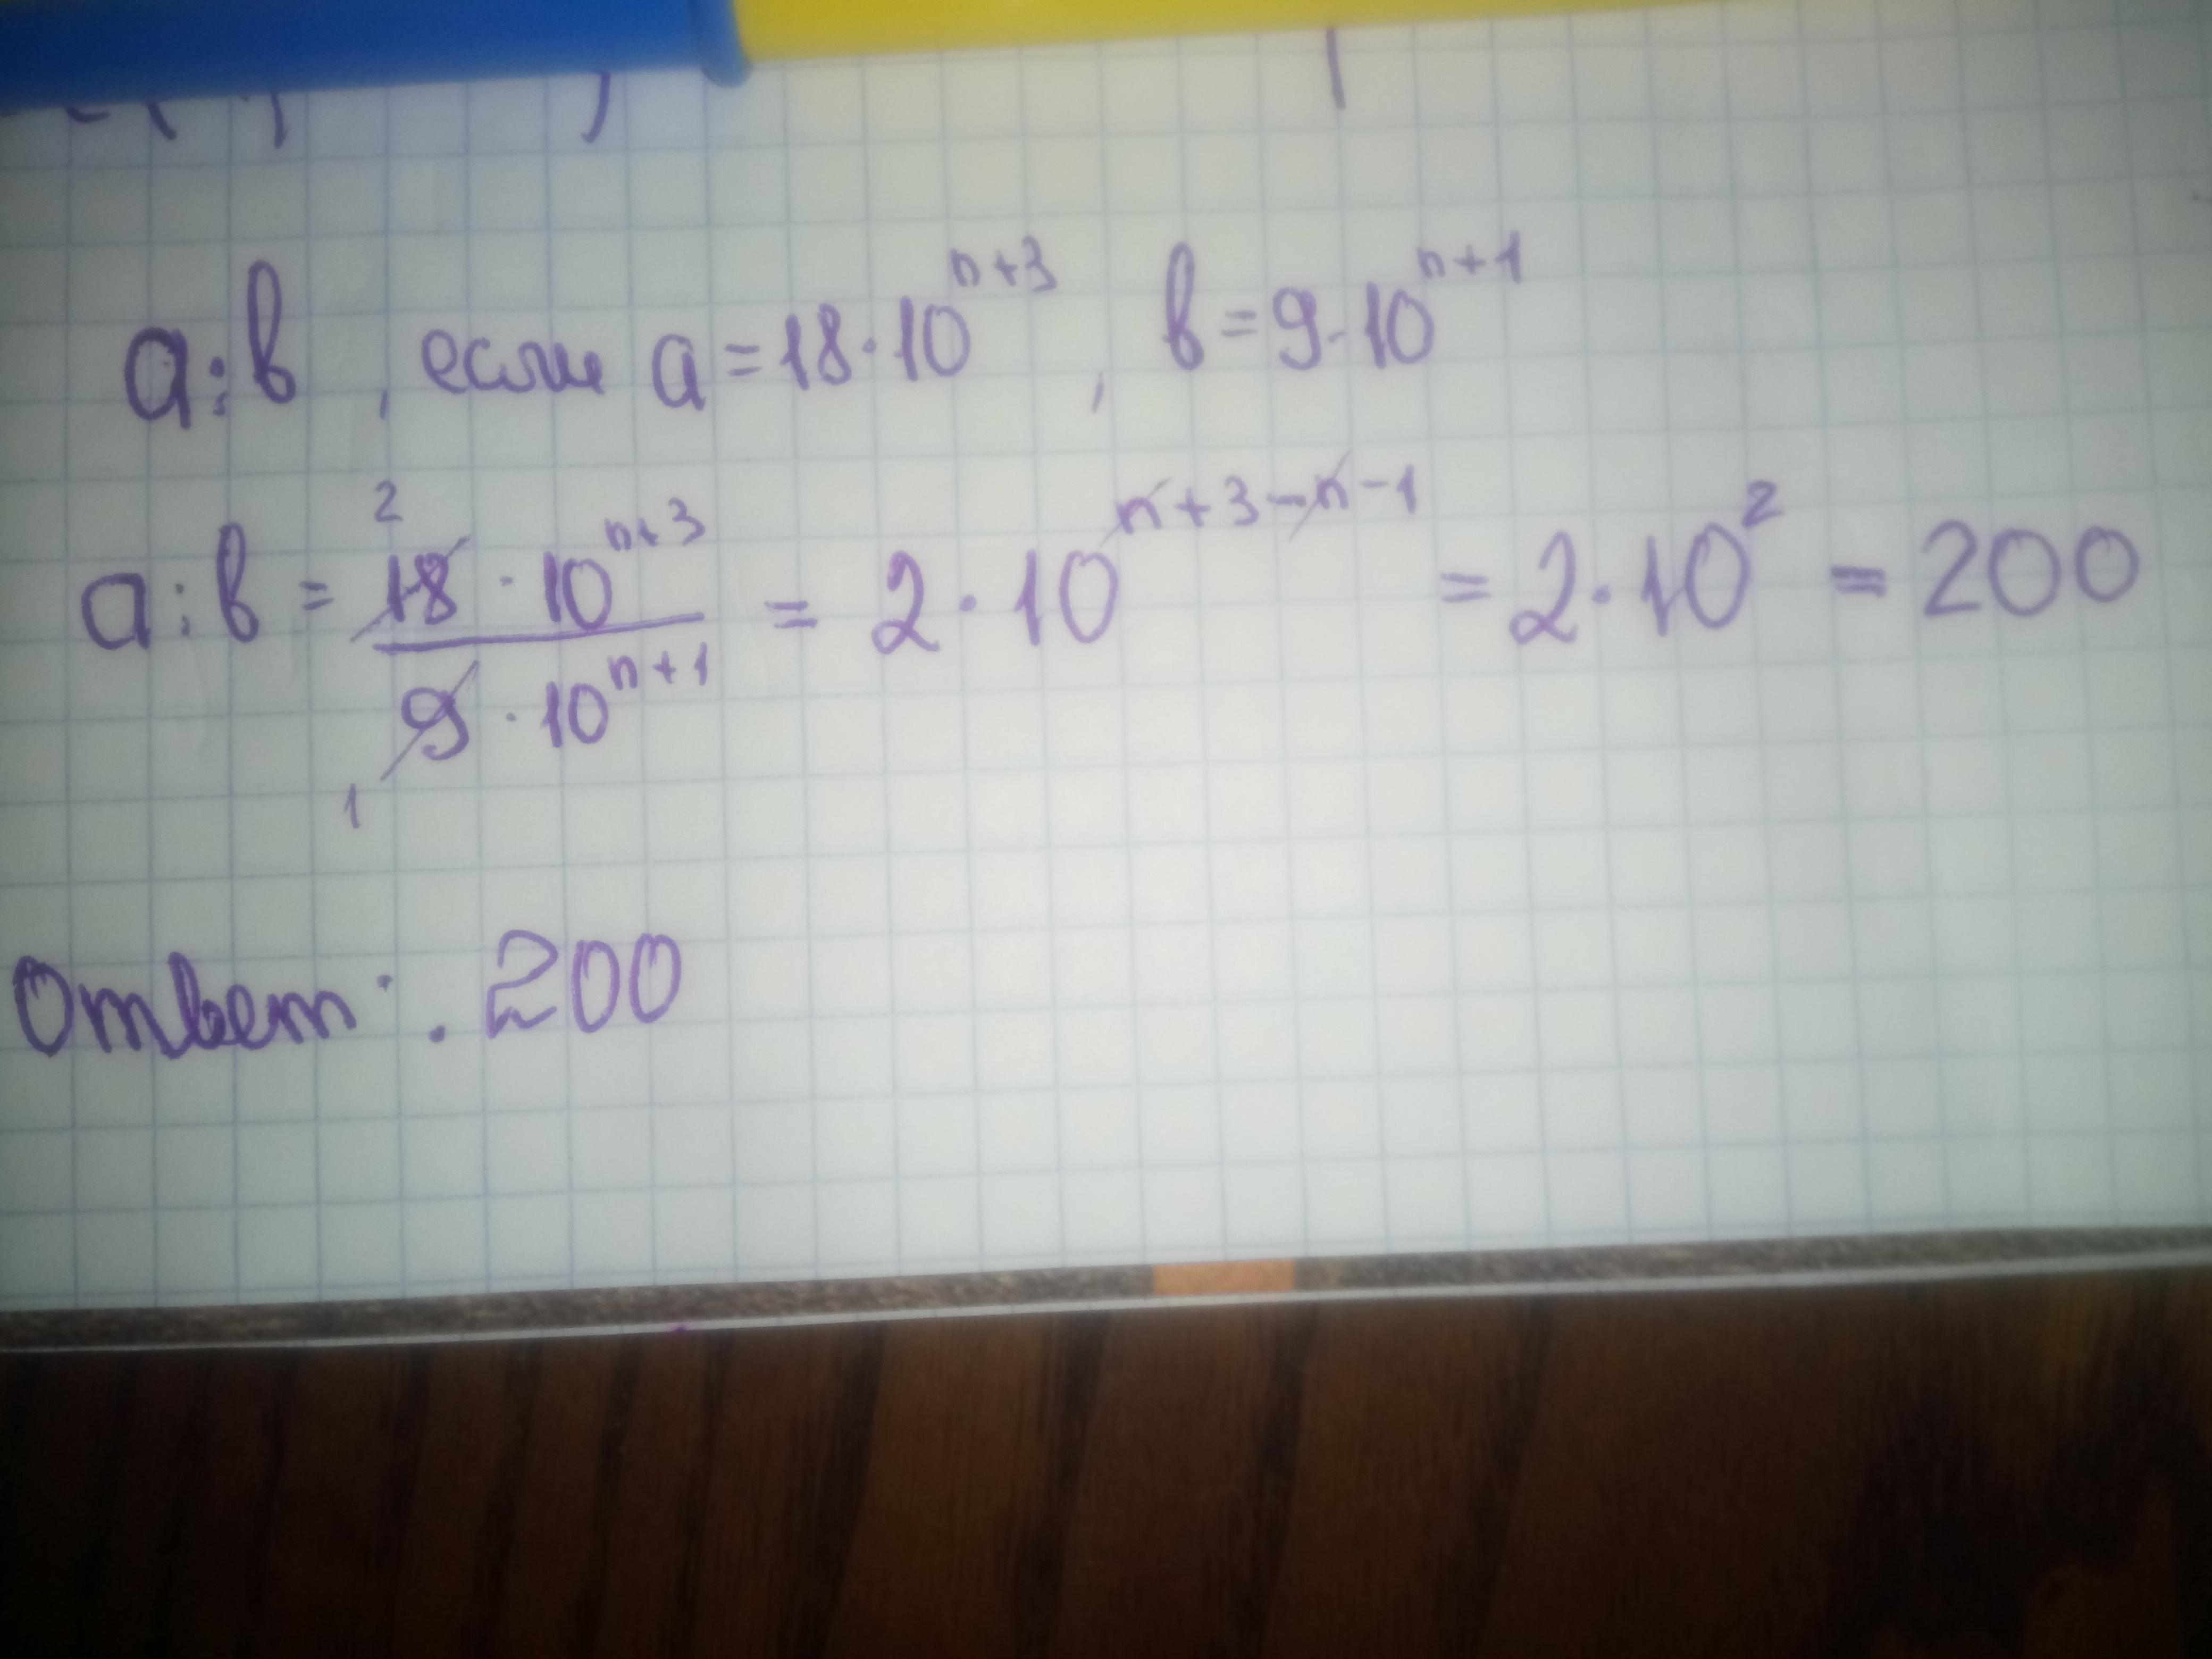 a:b, если a=18·10^(n+3), b=9·10^(n+1)
a:b = (18·10^(n+3))/(9·10^(n+1)) = 2·10^(n+3-n-1) = 2·10² = 200
2
1
Ответ: 200